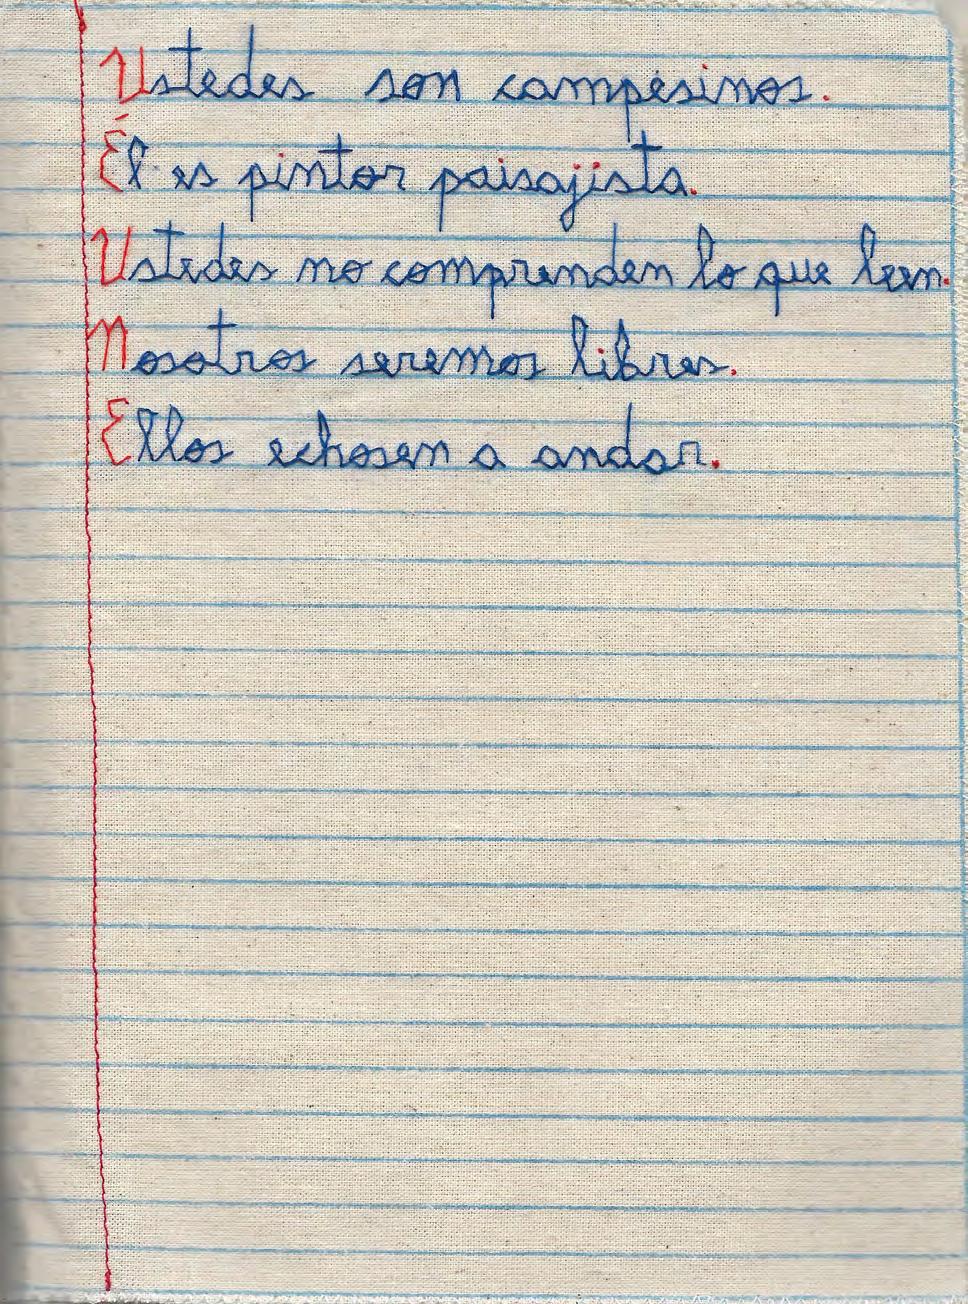 Ustedes son campesinos.
Él es pintor paisajista.
Ustedes no comprenden lo que leen.
Nosotros seremos libres.
Ellos echasen a andar.